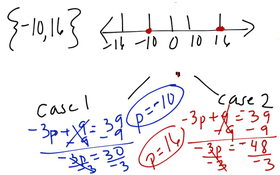 {-10,16}
-16 -10 0 10 16
case 1
-3p + 9 = 39
-9 -9
-3p = 30
-3 -3
p = -10
case 2
-3p + 9 = -39
-9 -9
-3p = -48
-3 -3
p = 16